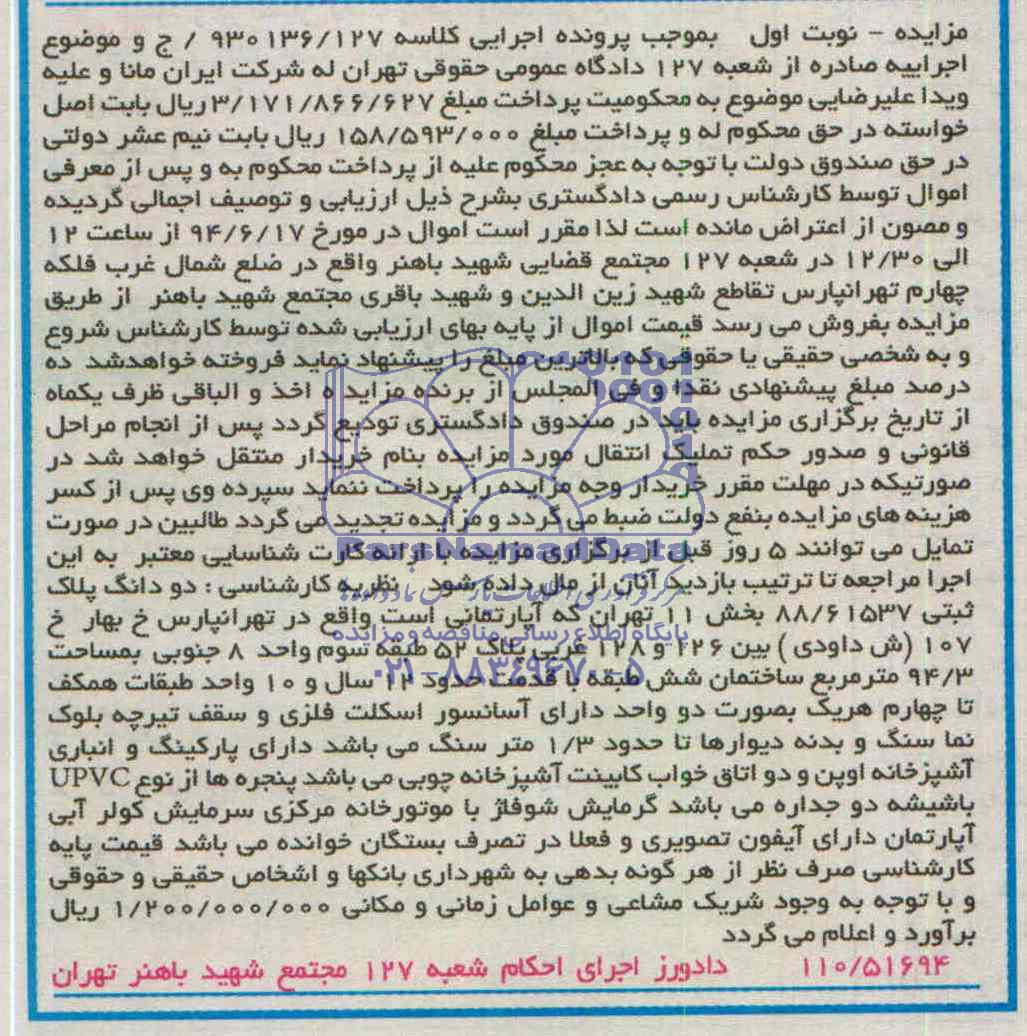 مزایده - نوبت اول بموجب پرونده اجرایی کلاسه ۹۳۰۱۳۶/۱۲۷ / ج و موضوع
اجراییه صادره از شعبه ۱۲۷ دادگاه عمومی حقوقی تهران له شرکت ایران مانا و علیه
ویدا علیرضایی موضوع به محکومیت پرداخت مبلغ ۳/۱۷۱/۸۶۶/۶۲۷ ریال بابت اصل
خواسته در حق محکوم له و پرداخت مبلغ ۱۵۸/۵۹۳/۰۰۰ ریال بابت نیم عشر دولتی
در حق صندوق دولت با توجه به عجز محکوم علیه از پرداخت محکوم به و پس از معرفی
اموال توسط کارشناس رسمی دادگستری بشرح ذیل ارزیابی و توصیف اجمالی گردیده
و مصون از اعتراض مانده است لذا مقرر است اموال در مورخ ۹۴/۶/۱۷ از ساعت ۱۲
الی ۱۲/۳۰ در شعبه ۱۲۷ مجتمع قضایی شهید باهنر واقع در ضلع شمال غرب فلکه
چهارم تهرانپارس تقاطع شهید زین الدین و شهید باقری مجتمع شهید باهنر از طریق
مزایده بفروش می رسد قیمت اموال از پایه بهای ارزیابی شده توسط کارشناس شروع
و به شخصی حقیقی یا حقوقی که بالاترین مبلغ را پیشنهاد نماید فروخته خواهدشد ده
درصد مبلغ پیشنهادی نقدا و فی المجلس از برنده مزایده اخذ و الباقی ظرف یکماه
از تاریخ برگزاری مزایده باید در صندوق دادگستری تودیع گردد پس از انجام مراحل
قانونی و صدور حکم تملیک انتقال مورد مزایده بنام خریدار منتقل خواهد شد در
صورتیکه در مهلت مقرر خریدار وجه مزایده را پرداخت ننماید سپرده وی پس از کسر
هزینه های مزایده بنفع دولت ضبط می گردد و مزایده تجدید می گردد طالبین در صورت
تمایل می توانند ۵ روز قبل از برگزاری مزایده با ارائه کارت شناسایی معتبر به این
اجرا مراجعه تا ترتیب بازدید آنان از مال داده شود . نظریه کارشناسی : دو دانگ پلاک
ثبتی ۸۸/۶۱۵۳۷ بخش ۱۱ تهران که آپارتمانی است واقع در تهرانپارس خ بهار خ
۱۰۷ (ش داودی ) بین ۱۲۶ و ۱۲۸ غربی پلاک ۵۲ طبقه سوم واحد ۸ جنوبی بمساحت
۹۴/۳ مترمربع ساختمان شش طبقه با قدمت حدود ۱۲ سال و ۱۰ واحد طبقات همکف
تا چهارم هریک بصورت دو واحد دارای آسانسور اسکلت فلزی و سقف تیرچه بلوک
نما سنگ و بدنه دیوارها تا حدود ۱/۳ متر سنگ می باشد دارای پارکینگ و انباری
آشپزخانه اوپن و دو اتاق خواب کابینت آشپزخانه چوبی می باشد پنجره ها از نوع UPVC
باشیشه دو جداره می باشد گرمایش شوفاژ با موتورخانه مرکزی سرمایش کولر آبی
آپارتمان دارای آیفون تصویری و فعلا در تصرف بستگان خوانده می باشد قیمت پایه
کارشناسی صرف نظر از هر گونه بدهی به شهرداری بانکها و اشخاص حقیقی و حقوقی
و با توجه به وجود شریک مشاعی و عوامل زمانی و مکانی ۱/۲۰۰/۰۰۰/۰۰۰ ریال
برآورد و اعلام می گردد
۱۱۰/۵۱۶۹۴ دادورز اجرای احکام شعبه ۱۲۷ مجتمع شهید باهنر تهران
ParsNamadData
پایگاه اطلاع رسانی مناقصه و مزایده
۰۲۱-۸۸۳۴۹۶۷۰-۵